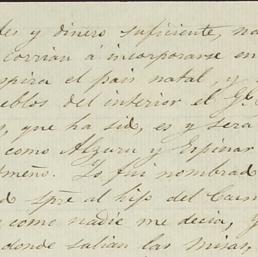 des y dinero suficiente, na
corrian á incorporarse en
spira el pais natal, y
eblos del interior el Gl
, que ha sid, es y será
como Alzuru y Espinar
tmeño. Lo fui nombrad
d spre al hijo del
como nadie me decia, q
donde salian las misas,